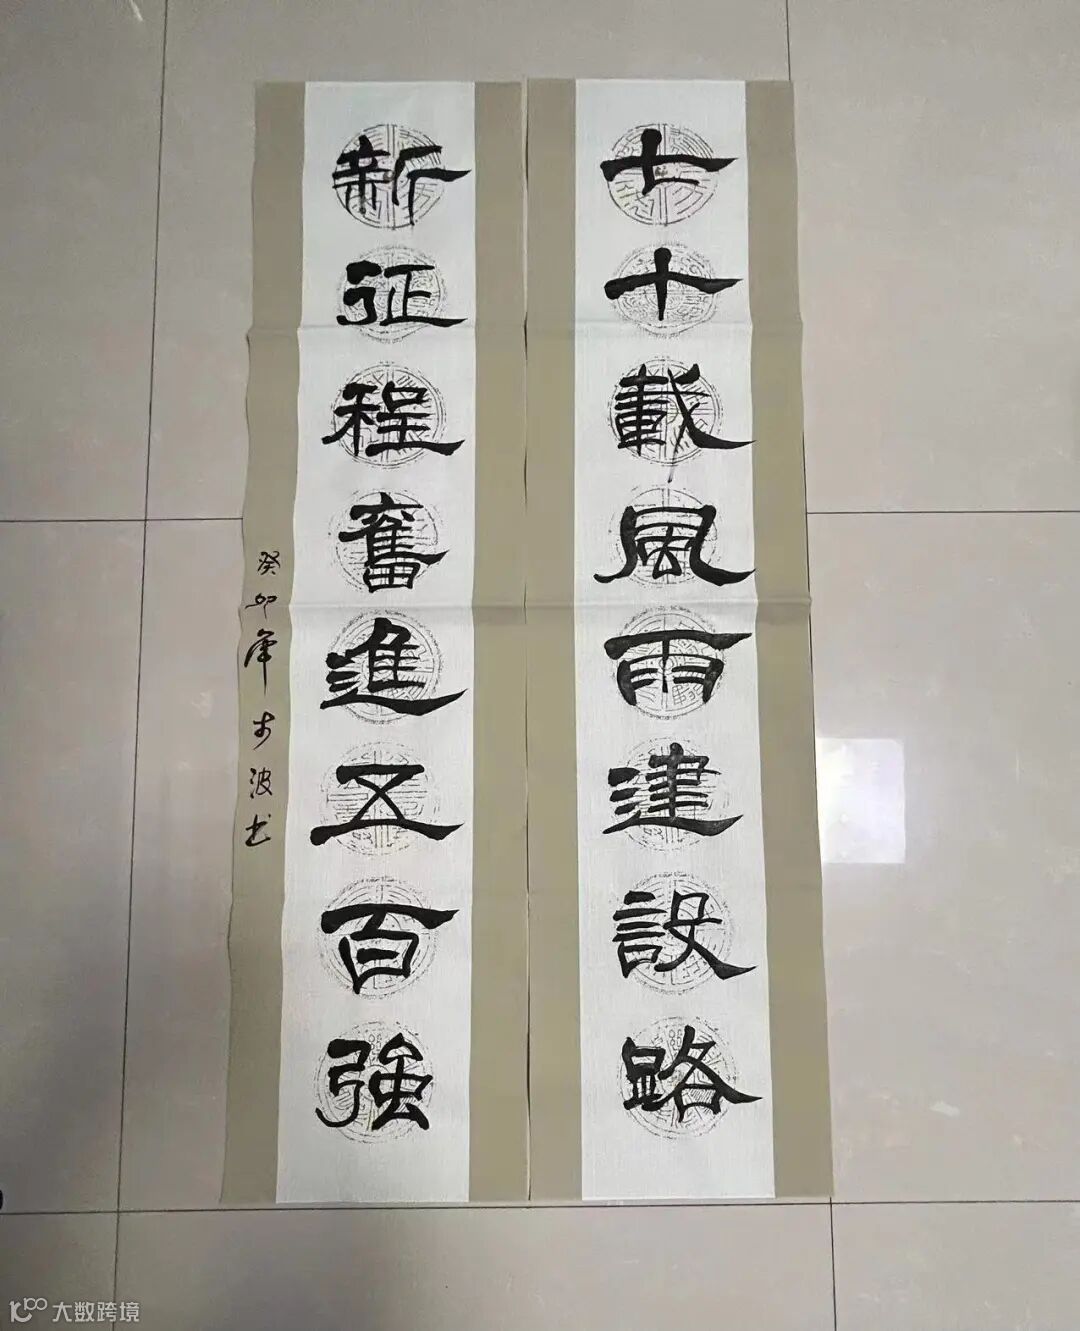 七十載風雨建設路
新征程奮進五百強
癸卯年 波书
大数跨境